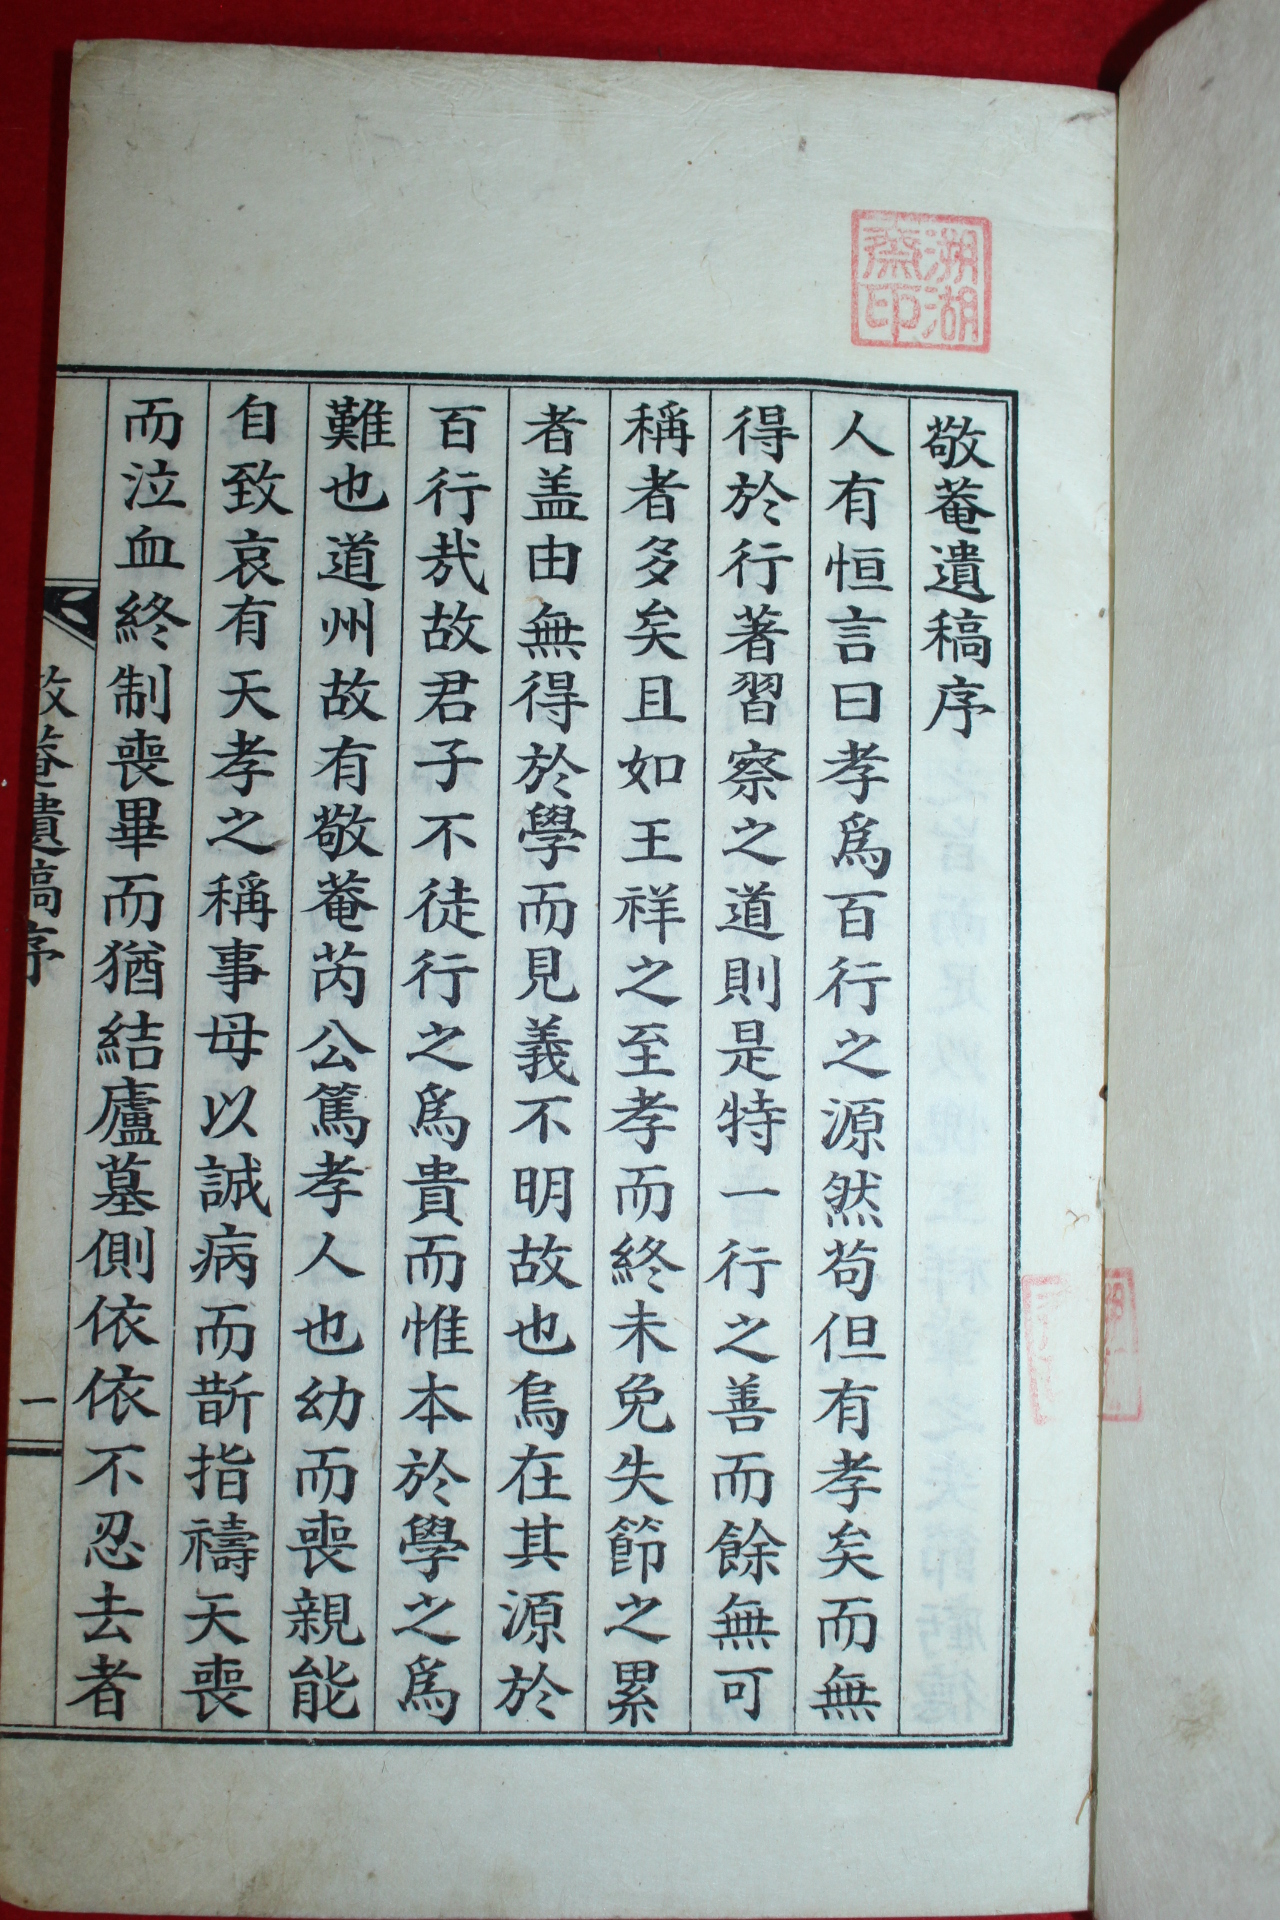 溯湖
齋印
敬菴遺稿序
人有恒言曰孝爲百行之源然苟但有孝矣而無
得於行著習察之道則是特一行之善而餘無可
稱者多矣且如王祥之至孝而終未免失節之累
者盖由無得於學而見義不明故也烏在其源於
百行㢤故君子不徒行之爲貴而惟本於學之爲
難也道州故有敬菴芮公篤孝人也幼而喪親能
自致哀有天孝之稱事母以誠病而斮指禱天喪
而泣血終制喪畢而猶結廬墓側依依不忍去者
敬菴遺稿序
一